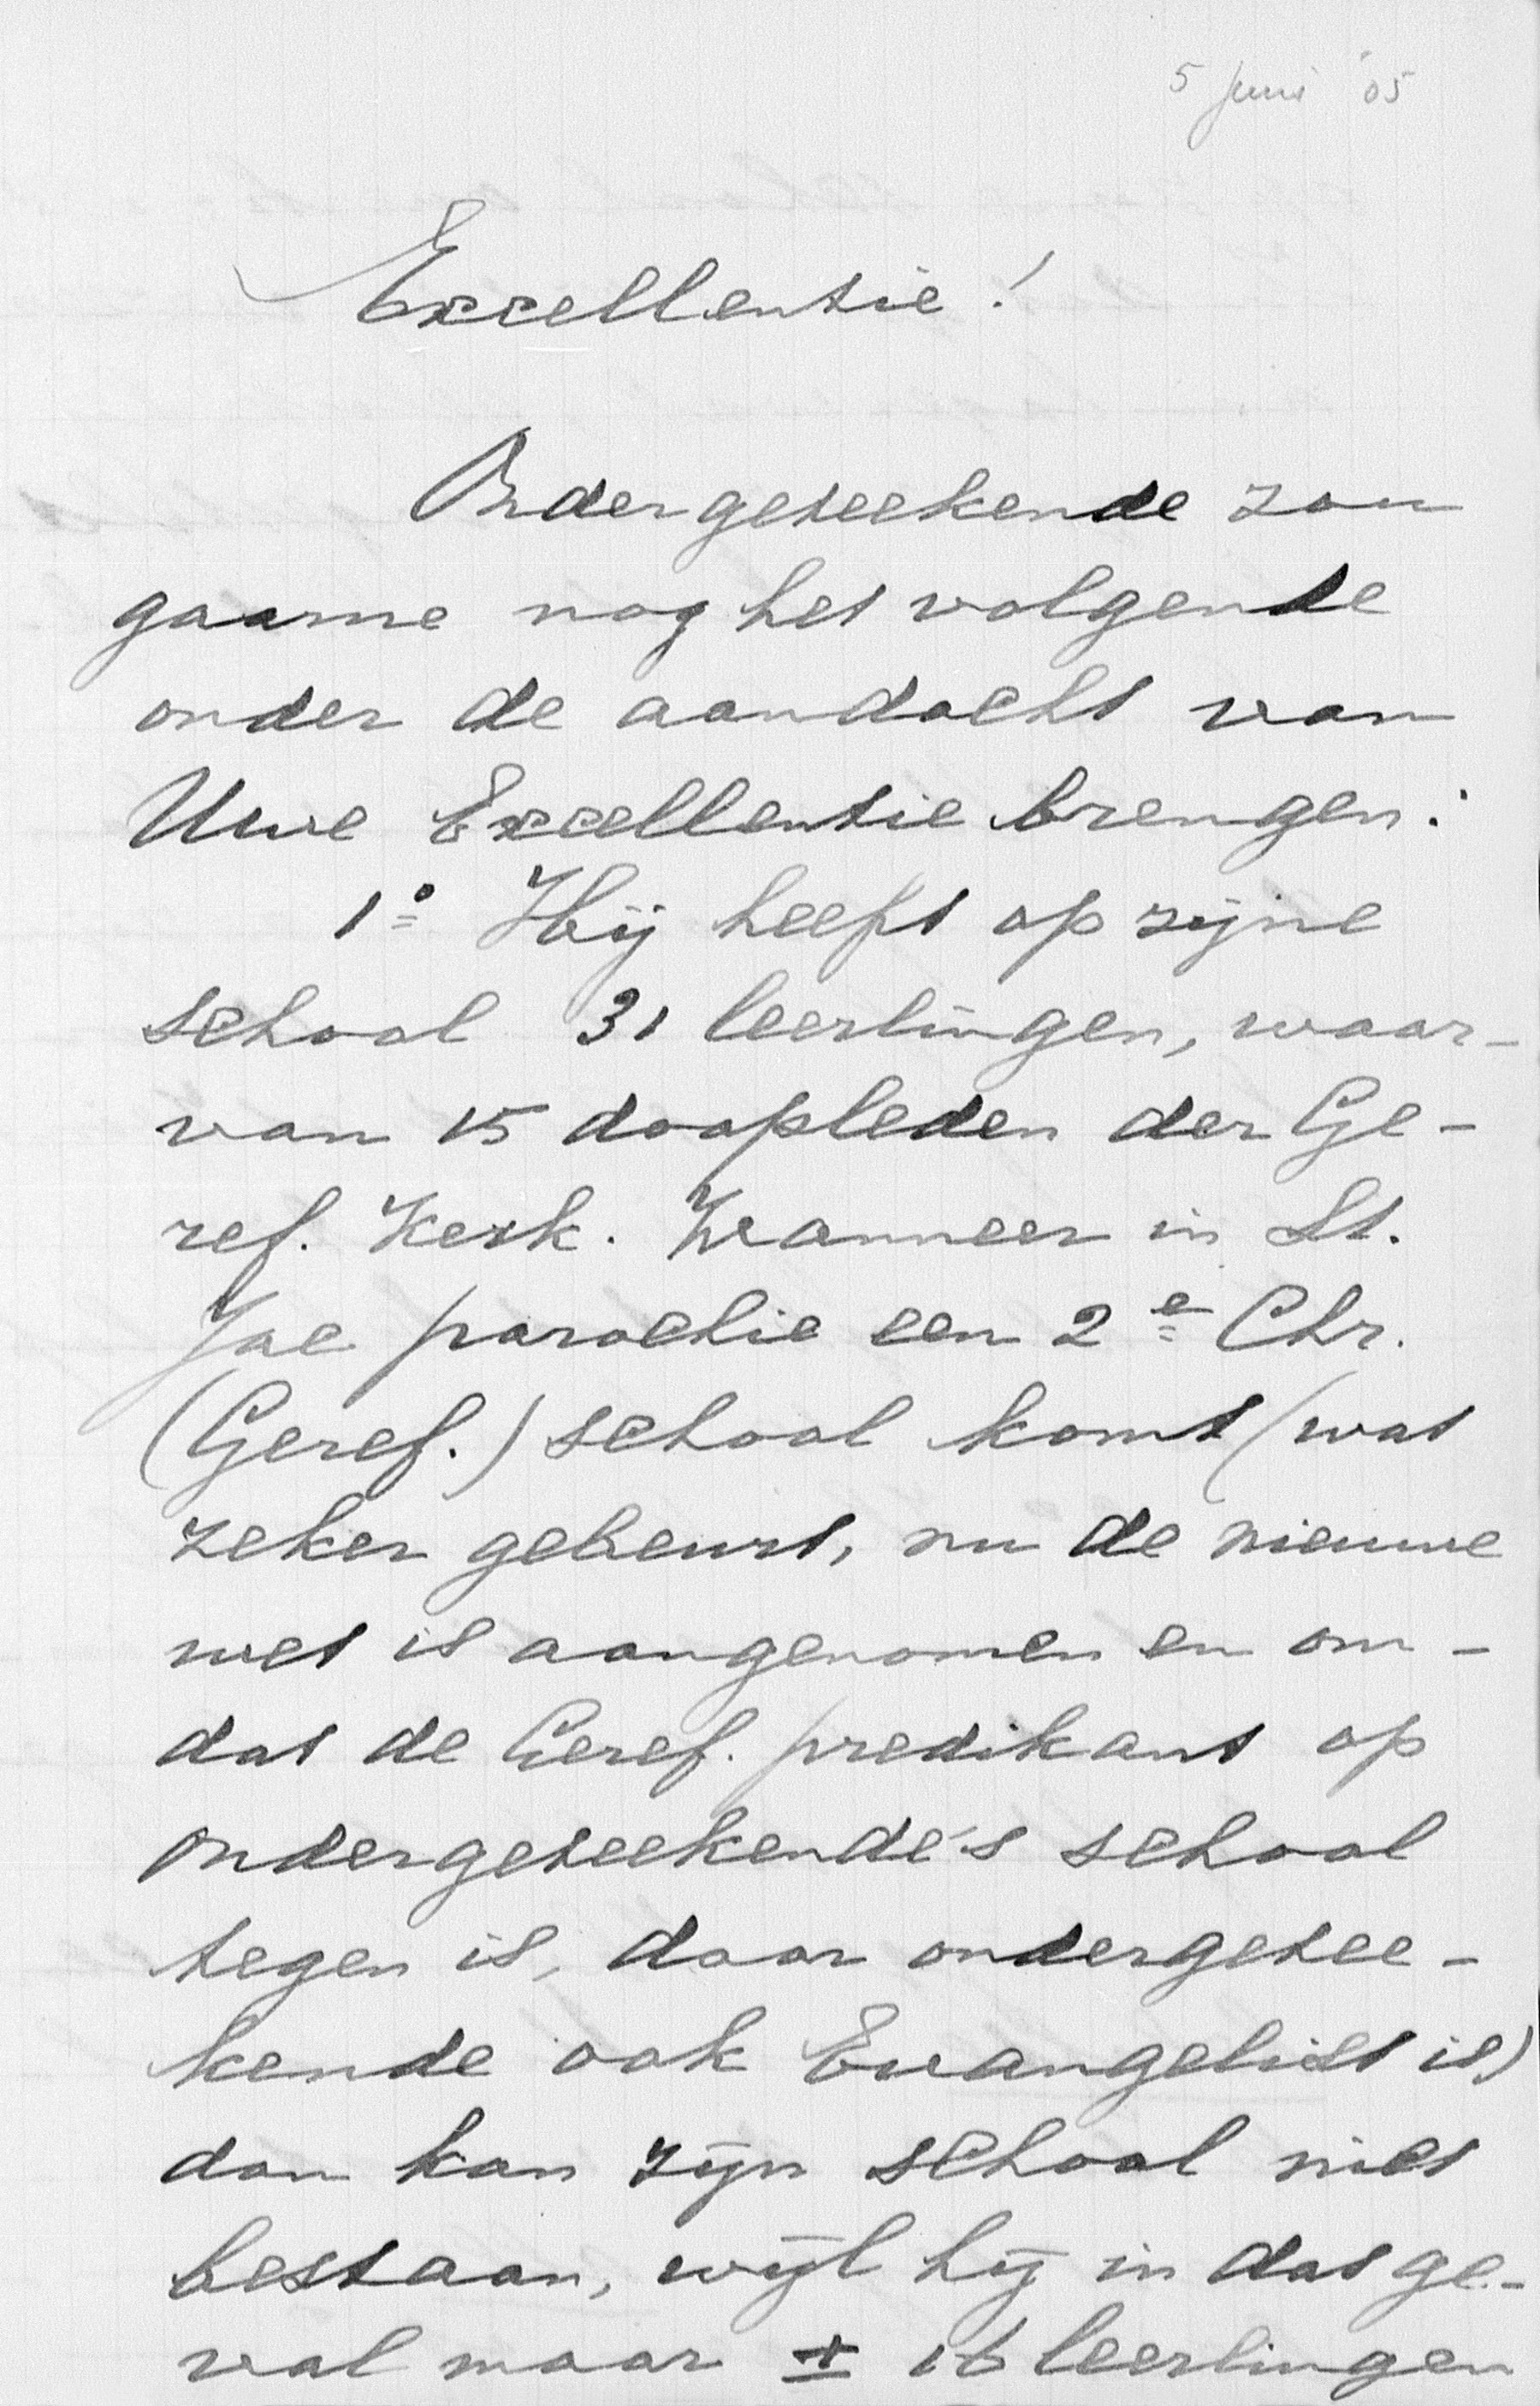 5 Juni '05
Excellentie!
Ondergeteekende zou
gaarne nog het volgende
onder de aandacht van
Uwe Excellentie brengen:
1º Hij heeft op zijne
school 31 leerlingen, waar-
van 15 doopleden der Ge-
ref. Kerk. Wanneer in St.
Jac parochie een 2e Chr.
(Geref.) school komt (wat
zeker gebeurt, nu de nieuwe
wet is aangenomen en om-
dat de Geref. predikant op
ondergeteekende's school
tegen is, daar ondergetee-
kende ook Evangelist is)
dan kan zijn school niet
bestaan, wijl hij in dat ge-
val maar ± 16 leerlingen